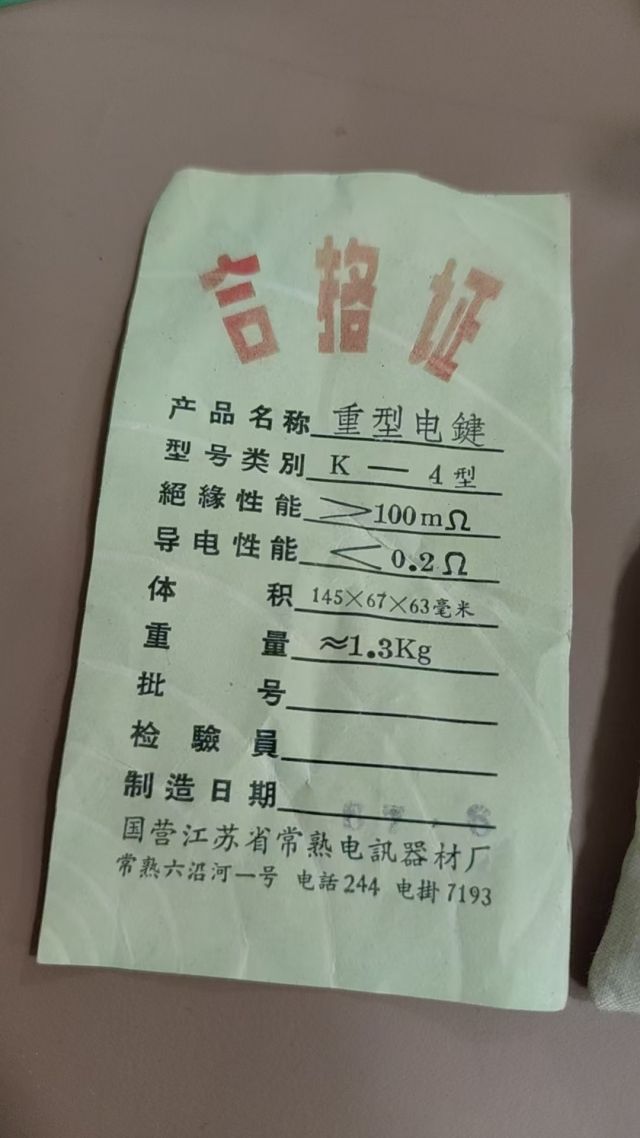 合格证
产品名称 重型电鍵
型号类別 K — 4型
絕緣性能 >100mΩ
导电性能 <0.2Ω
体积 145×67×63毫米
重量 ≈1.3Kg
批号
检驗員
制造日期 67.6
国营江苏省常熟电訊器材厂
常熟六沿河一号 电話244 电掛7193